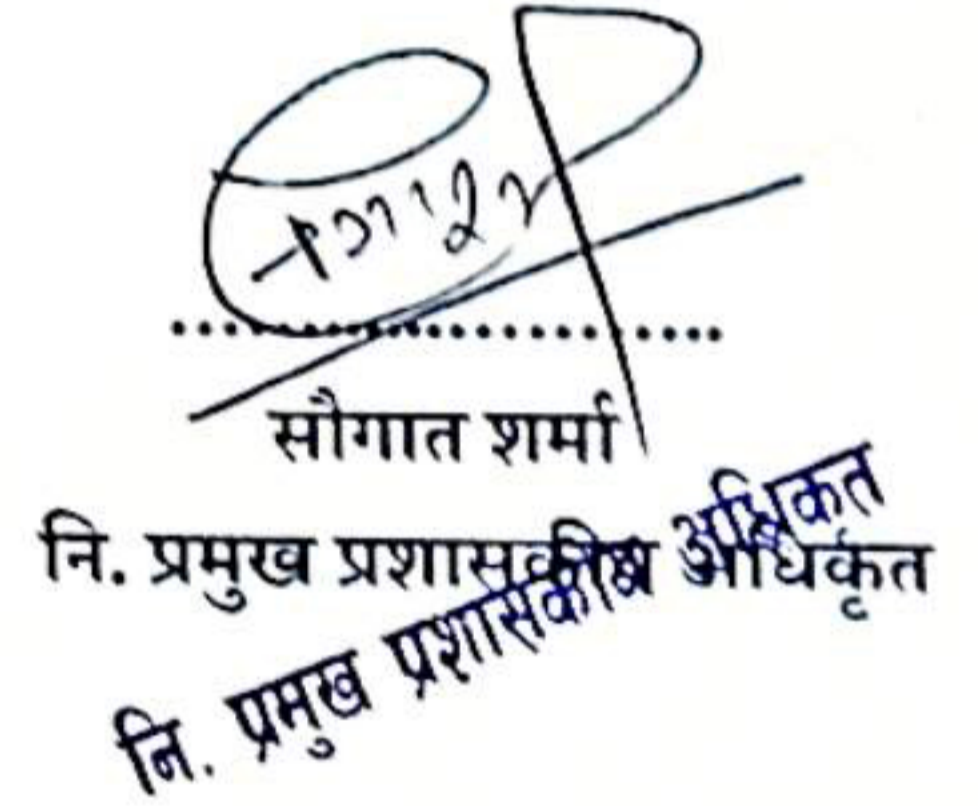 सौगात शर्मा
नि. प्रमुख प्रशासकीय अधिकृत
नि. प्रमुख प्रशासकीय अधिकृत